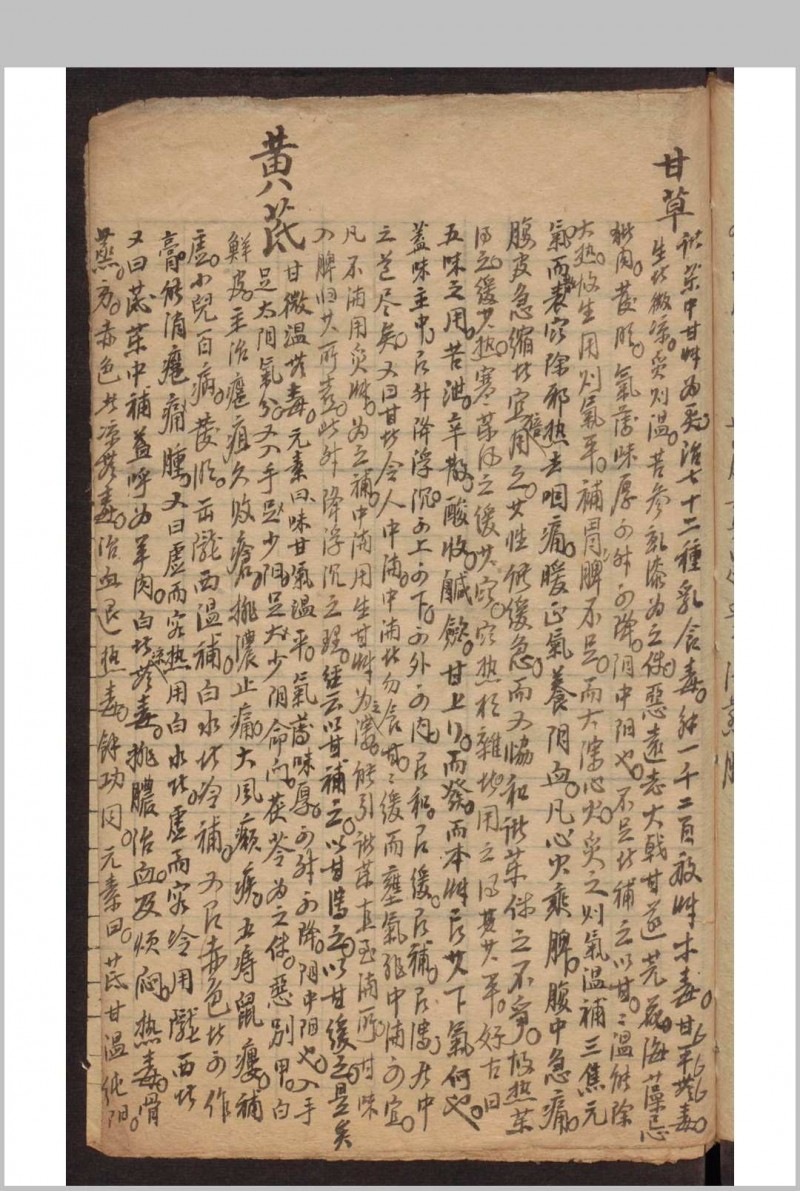 甘草
諸藥中甘艸為君。治七十二種乳食毒。解一千二百般艸木毒。甘平無毒。
生者微凉。炙則温。苦參乾漆為之使。惡遠志大戟甘遂芫花海藻忌
猪肉。發明。氣薄味厚。可升可降。阴中阳也。不足者補之以甘。甘温能除
大热。故生用則氣平。補脾胃不足。而大瀉心火。炙之則氣温補三焦元
氣。而散表寒除邪热。去咽痛。暖正氣養阴血。凡心火乘脾。腹中急痛。
腹皮急縮者宜倍用之。其性能緩急。而又協和諸藥使之不爭。故热藥
得之緩其热。寒藥得之緩其寒。寒热相雜者用之得其平。好古曰
五味之用。苦泄。辛散。酸收。鹹斂。甘上行。而發。而本艸言其下氣何也。
蓋味主中。有升降浮沉。可上可下。可外可内。有和有緩。有補有泄。居中
之道尽矣。又曰甘者令人中满。中满者勿食甘。甘緩而壅氣。非中满可宜。
凡不满用炙艸。为之補。中满用生甘艸为之瀉。能引諸藥直至满所。甘味
入脾归其所喜。此升降浮沉之理。經云以甘補之。以甘瀉之。以甘緩之。是矣
黄芪
甘微温無毒。元素曰味甘氣温平。氣薄味厚。可升可降。阴中阳也。入手
足太阳氣分。又入手足少阳。足太少阴命门。茯苓為之使。惡别甲。白
鮮皮。主治癰疽久敗瘡。排濃止痛。大風癩疾。五痔鼠瘻。補
虚。小兒百病。發明。云隴西温補。白水者冷補。又有赤色者可作
膏。能消癰痛腫。又曰虚而客热用白水者。虚而客冷用隴西者
又曰芪藥中補益呼为羊肉。白者無毒。排膿治血及烦闷。热毒。骨
蒸劳。赤色者凉無毒。治血退热毒。餘功同。元素曰。芪甘温純阳。